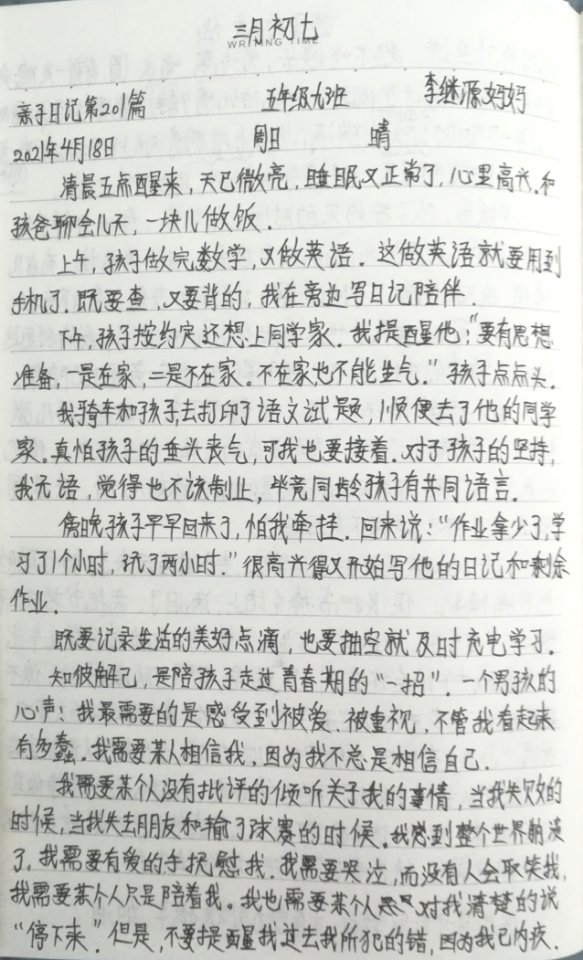 三月初七
WRITING TIME
亲子日记第201篇 五年级九班 李继源妈妈
2021年4月18日 周日 晴
清晨五点醒来，天已微亮，睡眠又正常了，心里高兴。和
孩爸聊会儿天，一块儿做饭.
上午，孩子做完数学，又做英语．这做英语就要用到
手机了．既要查，又要背的，我在旁边写日记陪伴．
下午，孩子按约定还想上同学家．我提醒他："要有思想
准备，一是在家，二是不在家。不在家也不能生气．"孩子点点头．
我骑车和孩子去打印了语文试题，顺便去了他的同学
家。真怕孩子的垂头丧气，可我也要接着．对于孩子的坚持，
我无语，觉得也不该制止，毕竟同龄孩子有共同语言．
傍晚孩子早早回来了，怕我牵挂．回来说："作业拿少了，学
习了1个小时，玩了两小时．"很高兴得又开始写他的日记和剩余
作业．
既要记录生活的美好点滴，也要抽空就及时充电学习．
知彼解己，是陪孩子走过青春期的"一招"．一个男孩的
心声：我最需要的是感受到被爱、被重视，不管我看起来
有多蠢．我需要某人相信我，因为我不总是相信自己．
我需要某个人没有批评的倾听关于我的事情，当我失败的
时候，当我失去朋友和输了球赛的时候．我感到整个世界崩溃
了，我需要有爱的手抚慰我．我需要哭泣，而没有人会取笑我，
我需要某个人只是陪着我。我也需要某个人 对我清楚的说
"停下来"．但是，不要提醒我过去我所犯的错，因为我已内疚．